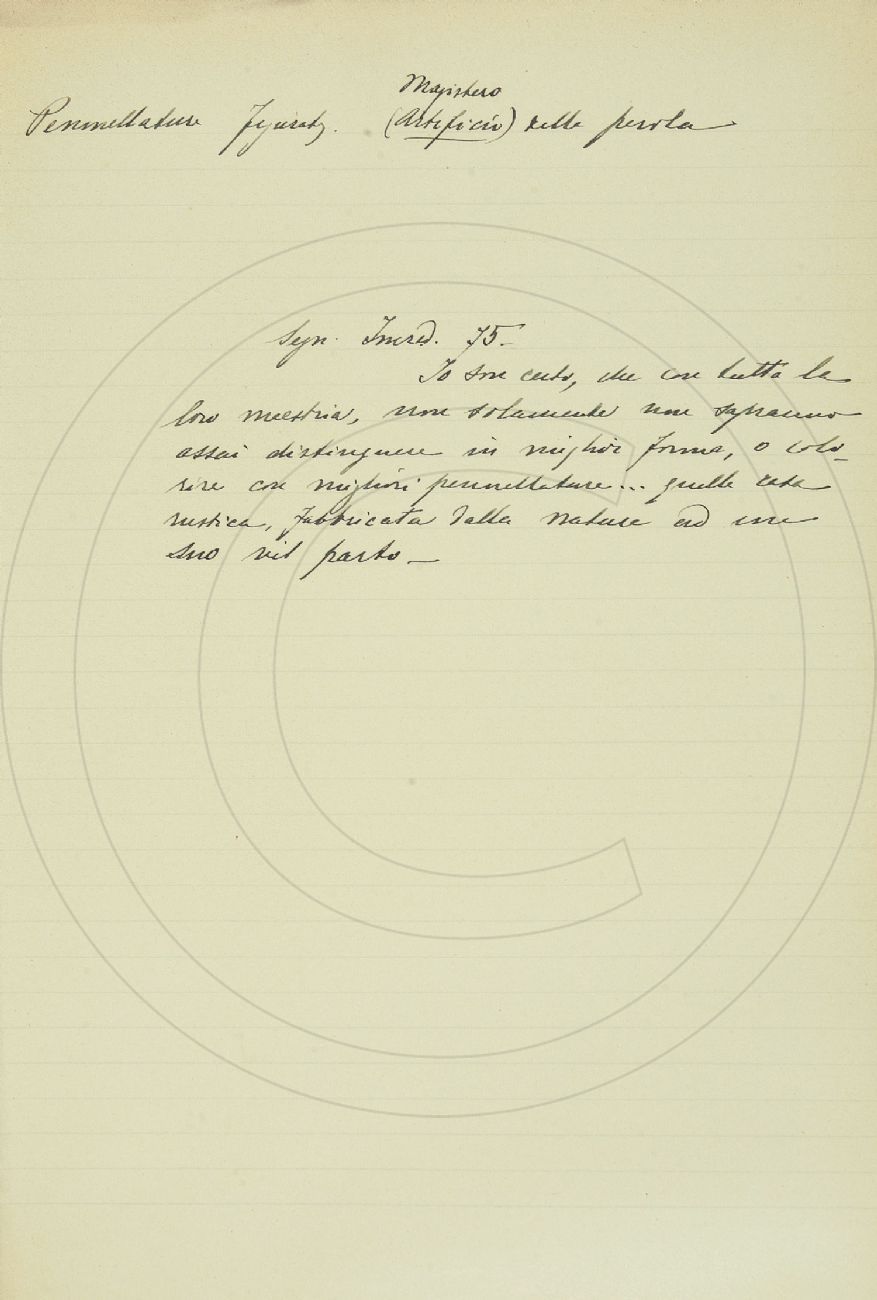 Magistero
Pennellature figurat. (Artificio) della perola
Segn. Incred. 75.
Io son certo, che con tutta la
loro maestria, non solamente non sapranno
assai distinguere in miglior forma, o colo-
rire con migliori pennellature... quella casa
rustica, fabbricata dalla natura ad un
suo vil parto.